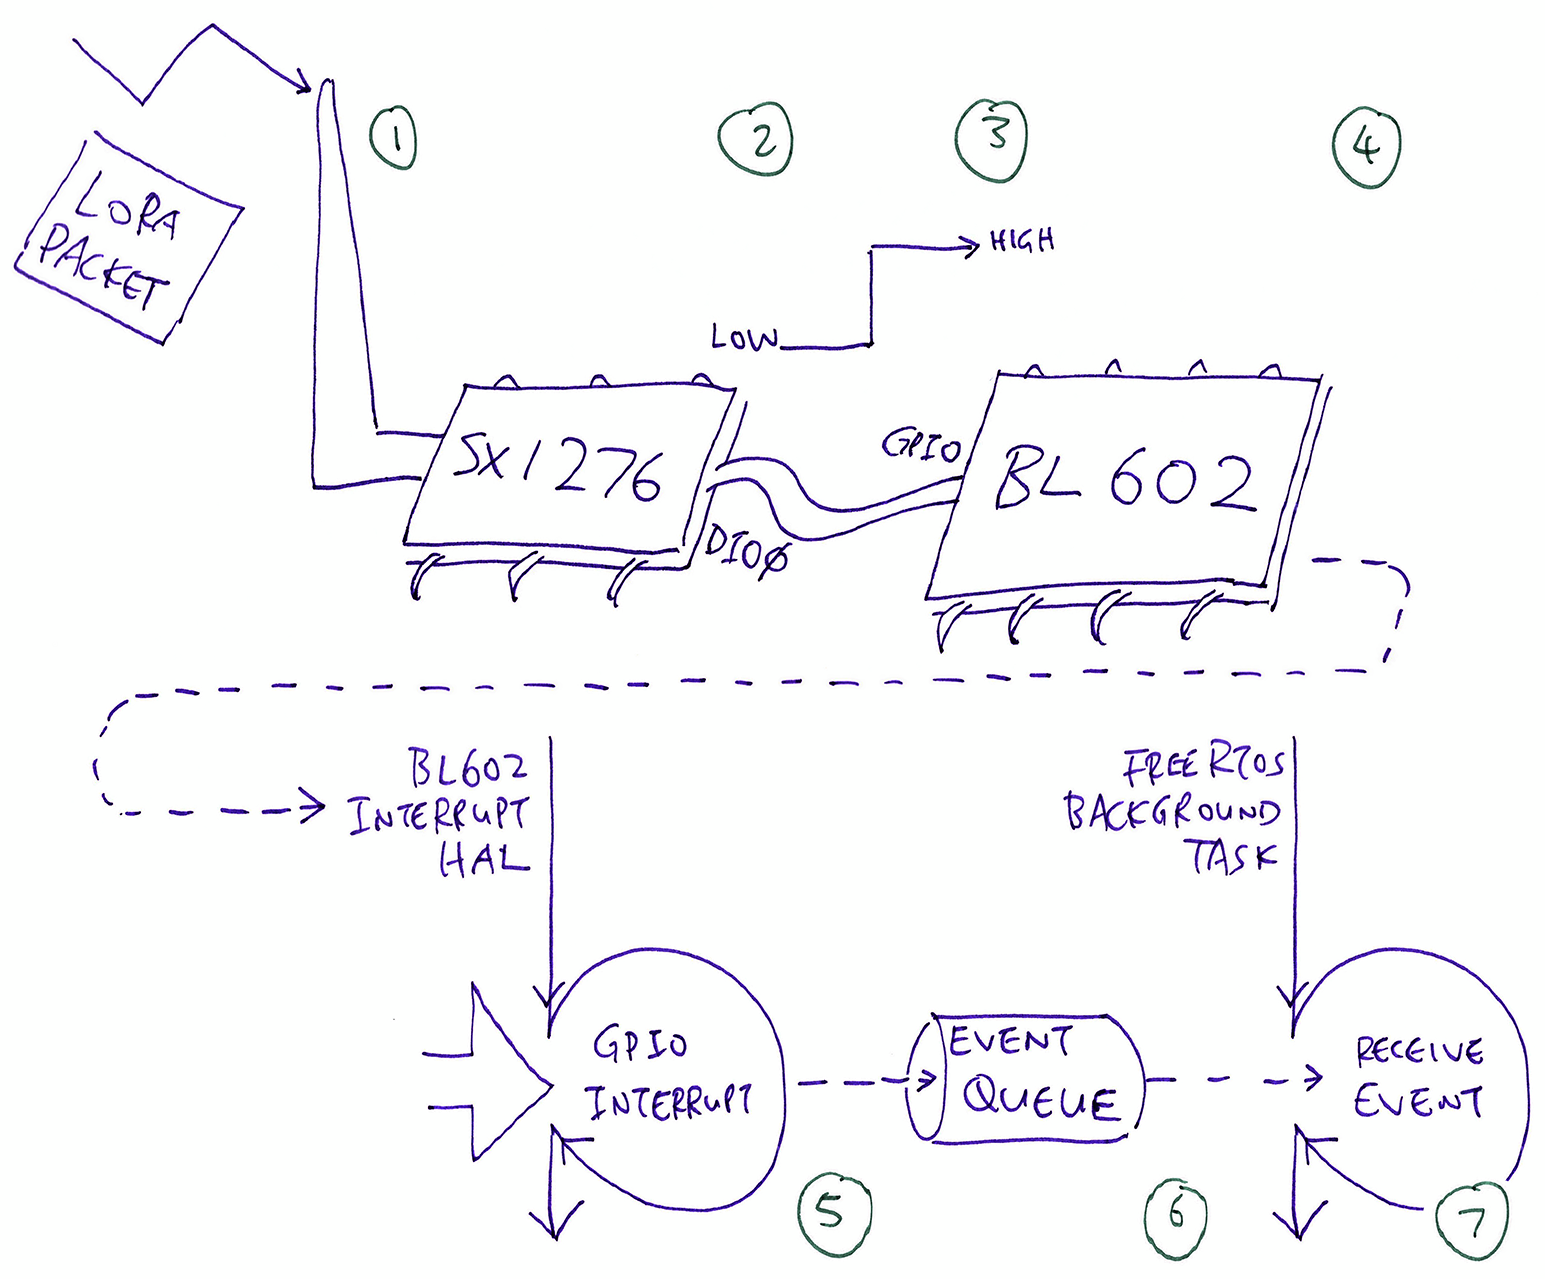 1
2
3
4
LORA
PACKET
HIGH
LOW
SX1276
DIO0
GPIO
BL602
BL602
INTERRUPT
HAL
FREERTOS
BACKGROUND
TASK
GPIO
INTERRUPT
EVENT
QUEUE
RECEIVE
EVENT
5
6
7